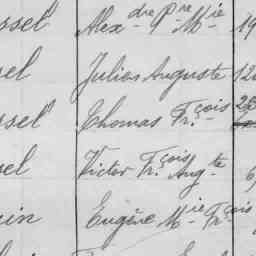 ssel Alexdre Pre Mie 19
sel Jules Auguste 12
ssel Thomas Frçois
sel Victor Frçois Augte
in Eugène Mie Frçois